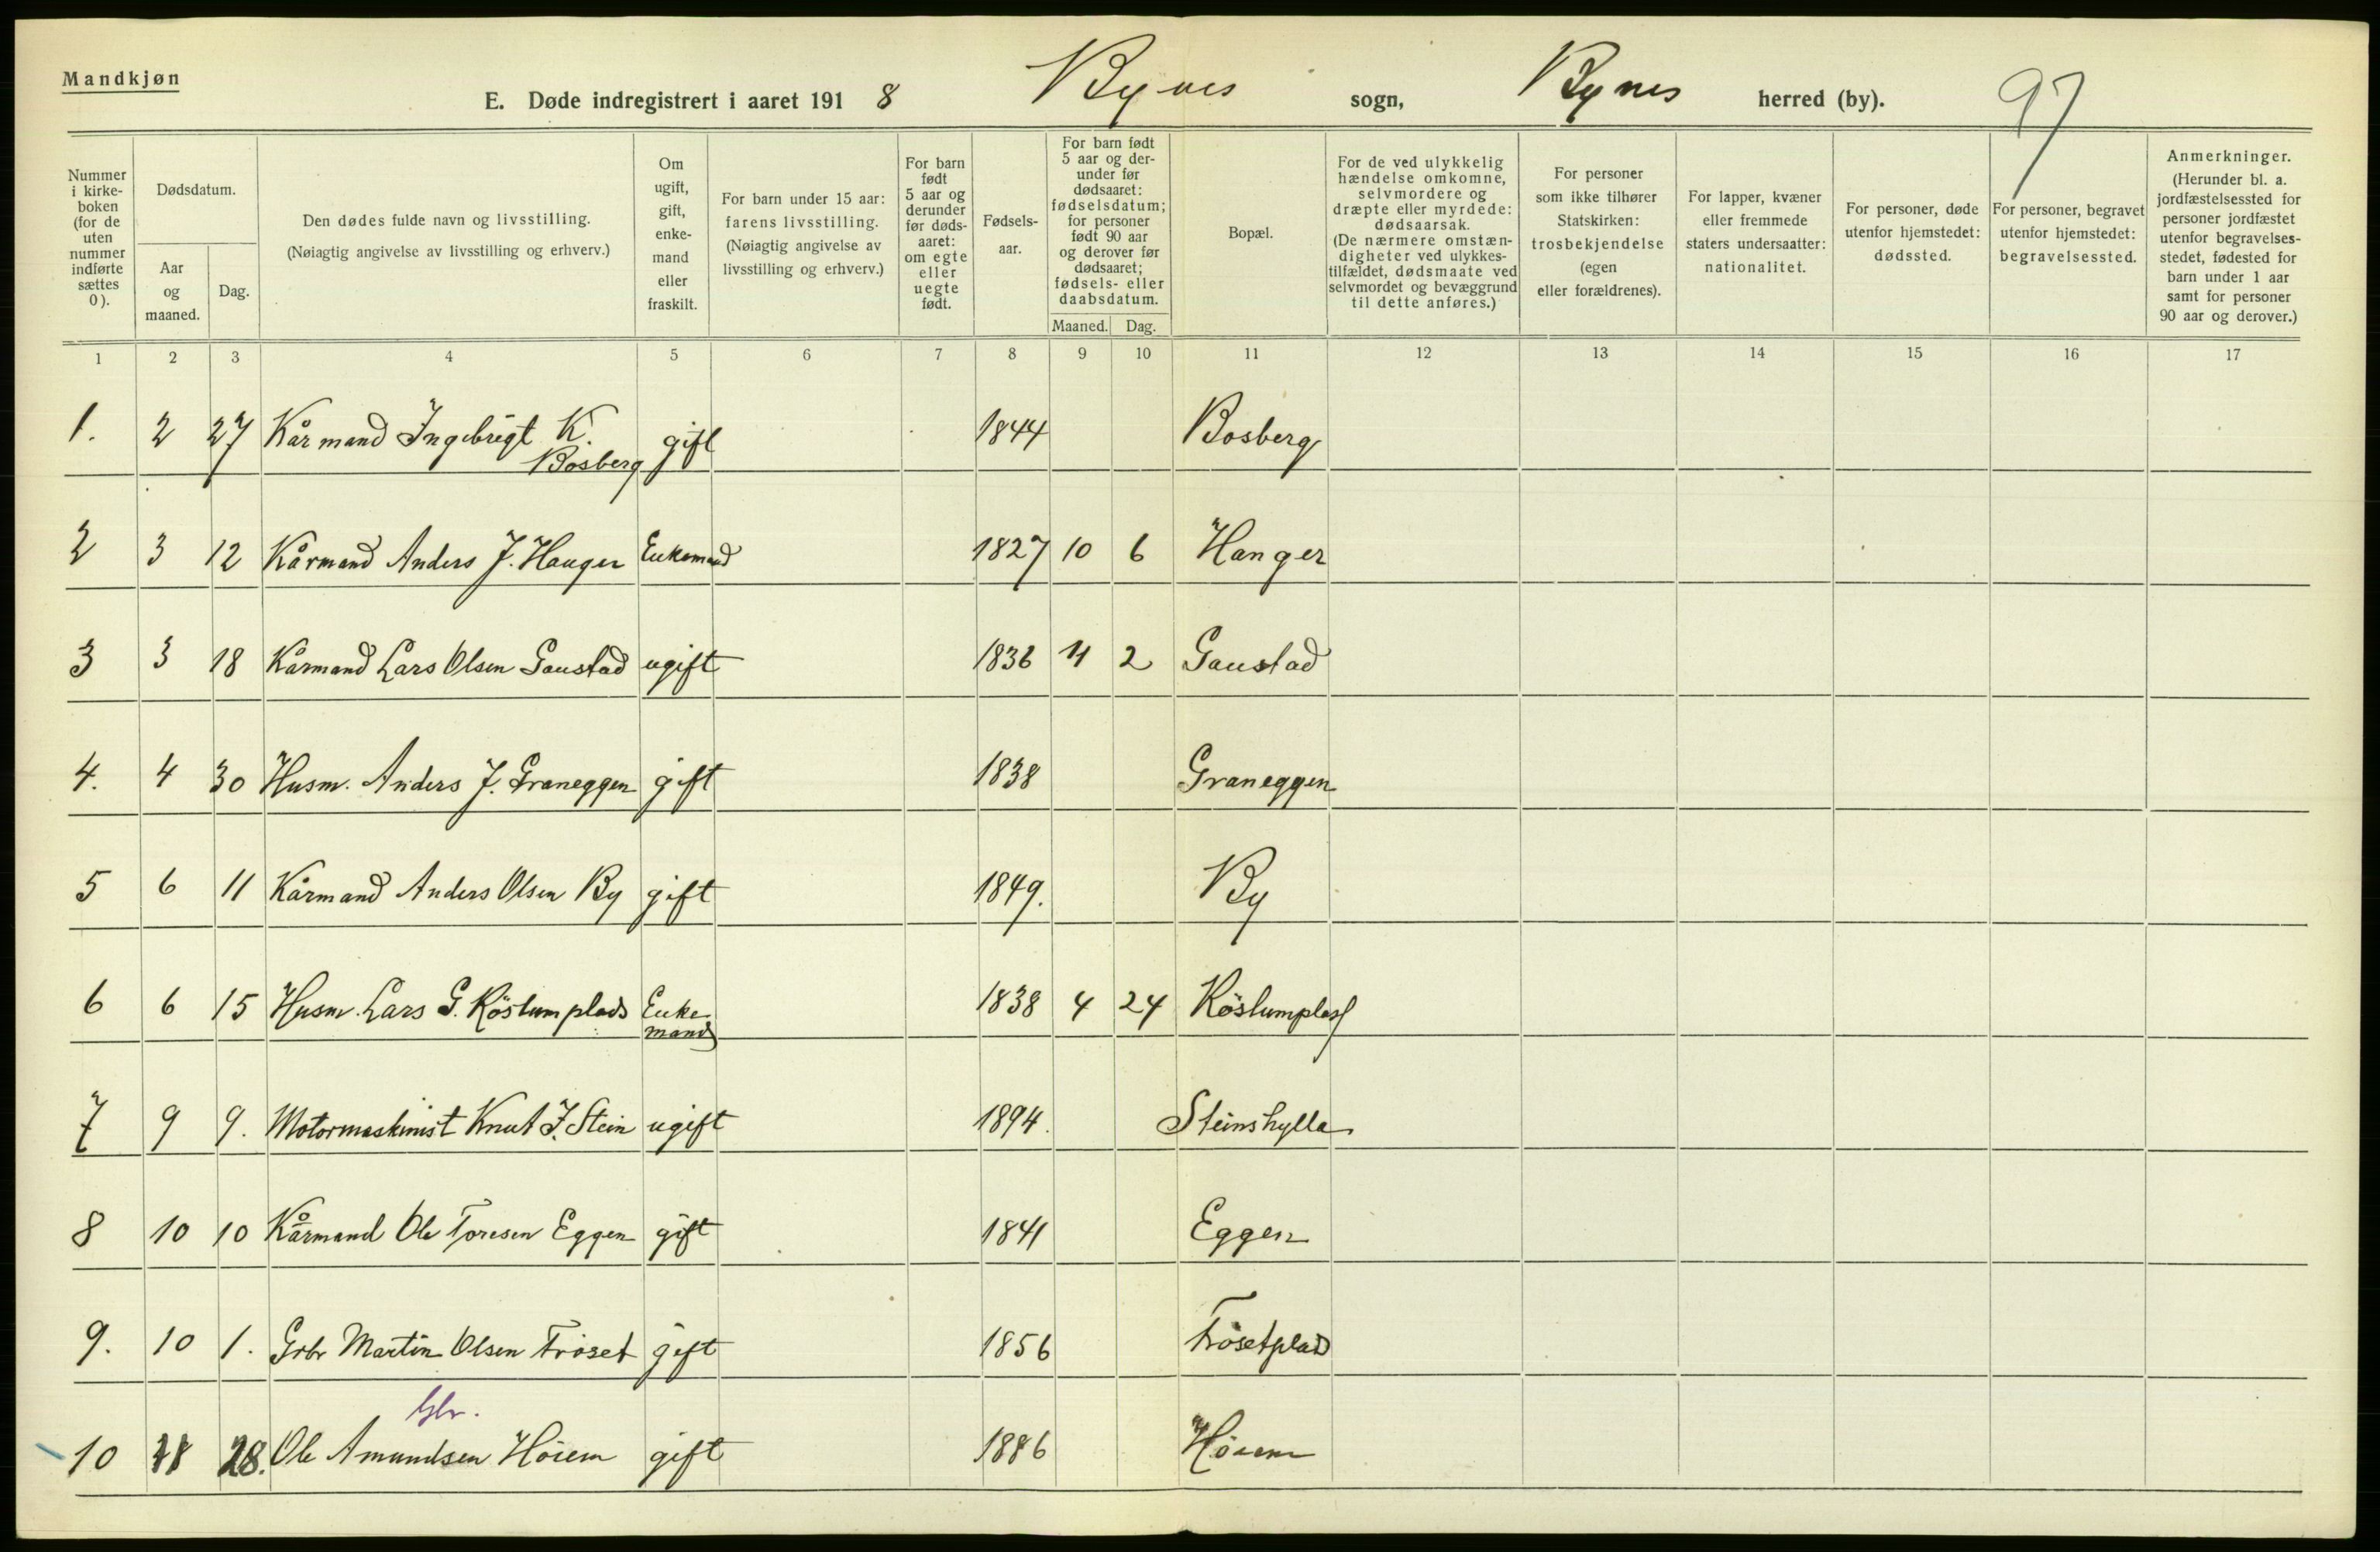 Mandkjøn
E. Døde indregistrert i aaret 1918 Bynes sogn, Bynes herred (by). 97
Nummer i kirke- boken (for de uten nummer indførte sættes 0).
Dødsdatum.
Aar og maaned.
Dag.
Den dødes fulde navn og livsstilling.
(Nøiagtig angivelse av livsstilling og erhverv.)
Om ugift, gift, enke- mand eller fraskilt.
For barn under 15 aar: farens livsstilling. (Nøiagtig angivelse av livsstilling og erhverv.)
For barn født 5 aar og derunder før døds- aaret: om egte eller uegte født.
Fødsels- aar.
For barn født 5 aar og der- under før dødsaaret: fødselsdatum; for personer født 90 aar og derover før dødsaaret; fødsels- eller daabsdatum.
Maaned. Dag.
Bopæl.
For de ved ulykkelig hændelse omkomne, selvmordere og dræpte eller myrdede: dødsaarsak. (De nærmere omstæn- digheter ved ulykkes- tilfældet, dødsmaate ved selvmordet og bevæggrund til dette anføres.)
For personer som ikke tilhører Statskirken: trosbekjendelse (egen eller forældrenes).
For lapper, kvæner eller fremmede staters undersaatter: nationalitet.
For personer, døde utenfor hjemstedet: dødssted.
For personer, begravet utenfor hjemstedet: begravelsessted.
Anmerkninger. (Herunder bl. a. jordfæstelsessted for personer jordfæstet utenfor begravelses- stedet, fødested for barn under 1 aar samt for personer 90 aar og derover.)
1 2 3 4 5 6 7 8 9 10 11 12 13 14 15 16 17
1. 2 27 Kårmand Ingebrigt K. Bosberg gift 1844 Bosberg
2 3 12 Kårmand Anders J. Hanger Enkemand 1827 10 6 Hanger
3 3 18 Kårmand Lars Olsen Gaustad ugift 1836 4 2 Gaustad
4. 4 30 Husm. Anders J. Graneggen gift 1838 Graneggen
5 6 11 Kårmand Anders Olsen By gift 1849. By
6 6 15 Husm. Lars G. Röstumplads Enke mand 1838 4 24 Röstumplads
7 9 9. Motormaskinist Knut J. Stein ugift 1894. Steinshylla
8 10 10 Kårmand Ole Toresen Eggen gift 1841 Eggen
9. 10 1. Grbr Martin Olsen Fröset gift 1856 Frösetplads
Gbr.
10 28. Ole Amundsen Höiem gift 1886 Höiem